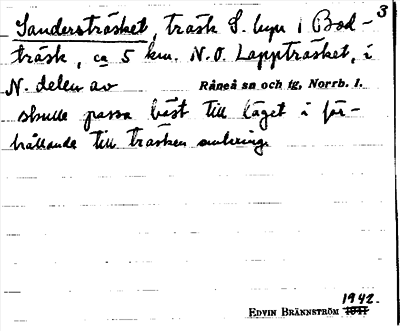 3
Sandersträsket, träsk S. byn i Bod-
träsk, ca 5 km. N.O. Lappträsket, i
N. delen av Råneå sn och tg, Norrb. l.
skulle passa bäst till läget i för-
hållande till träsken omkring.
1942.
EDVIN BRÄNNSTRÖM 1941